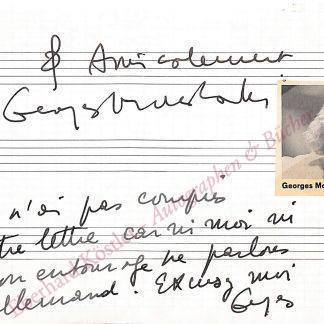 & Amicalement
Georges Moustaki
Georges Mo
n'ai pas compris
tre lettre car ni moi ni
on entourage ne parlons
llemand. Excusez moi
Eberhard Köstler Autographen & Bücher